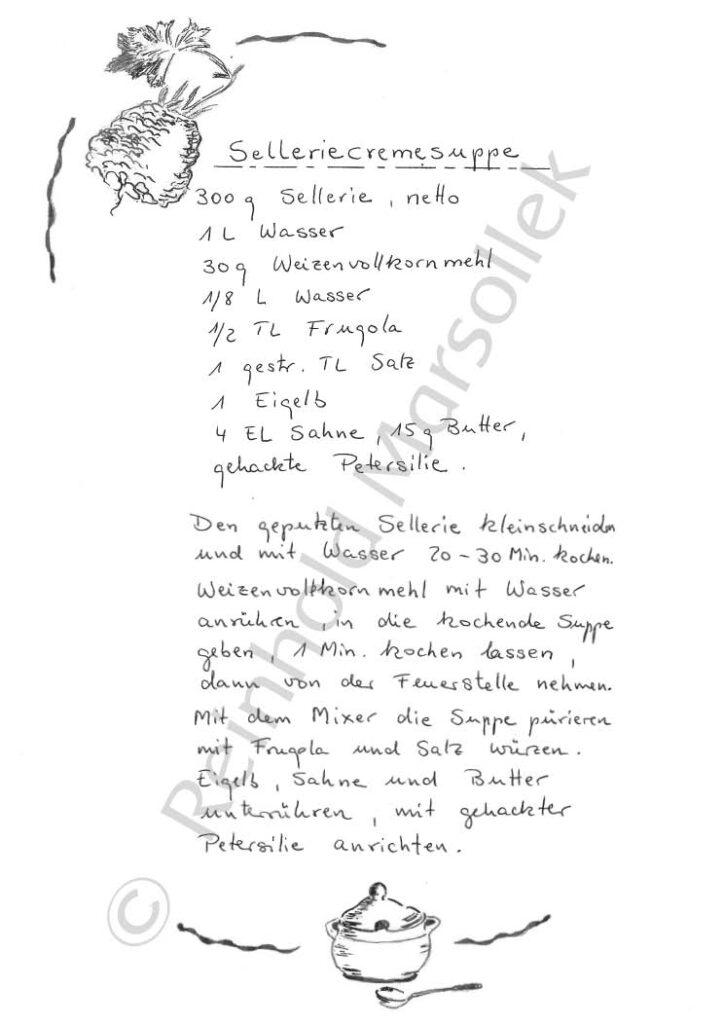 Selleriecremesuppe
300 g Sellerie, netto
1 L Wasser
30 g Weizenvollkornmehl
1/8 L Wasser
1/2 TL Frugola
1 gestr. TL Salz
1 Eigelb
4 EL Sahne, 15 g Butter,
gehackte Petersilie.
Den geputzten Sellerie kleinschneiden
und mit Wasser 20-30 Min. kochen.
Weizenvollkornmehl mit Wasser
anrühren, in die kochende Suppe
geben, 1 Min. kochen lassen,
dann von der Feuerstelle nehmen.
Mit dem Mixer die Suppe pürieren
mit Frugola und Salz würzen.
Eigelb, Sahne und Butter
unterrühren, mit gehackter
Petersilie anrichten.
© Reinhold Marsollek